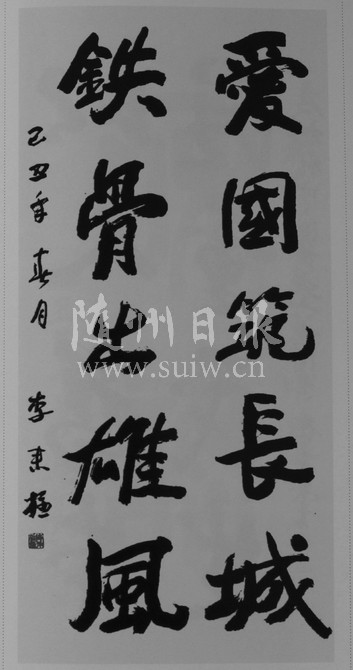 愛國筑長城
鉄骨出雄風
己丑年春月
李
随州日报
www.suiw.cn